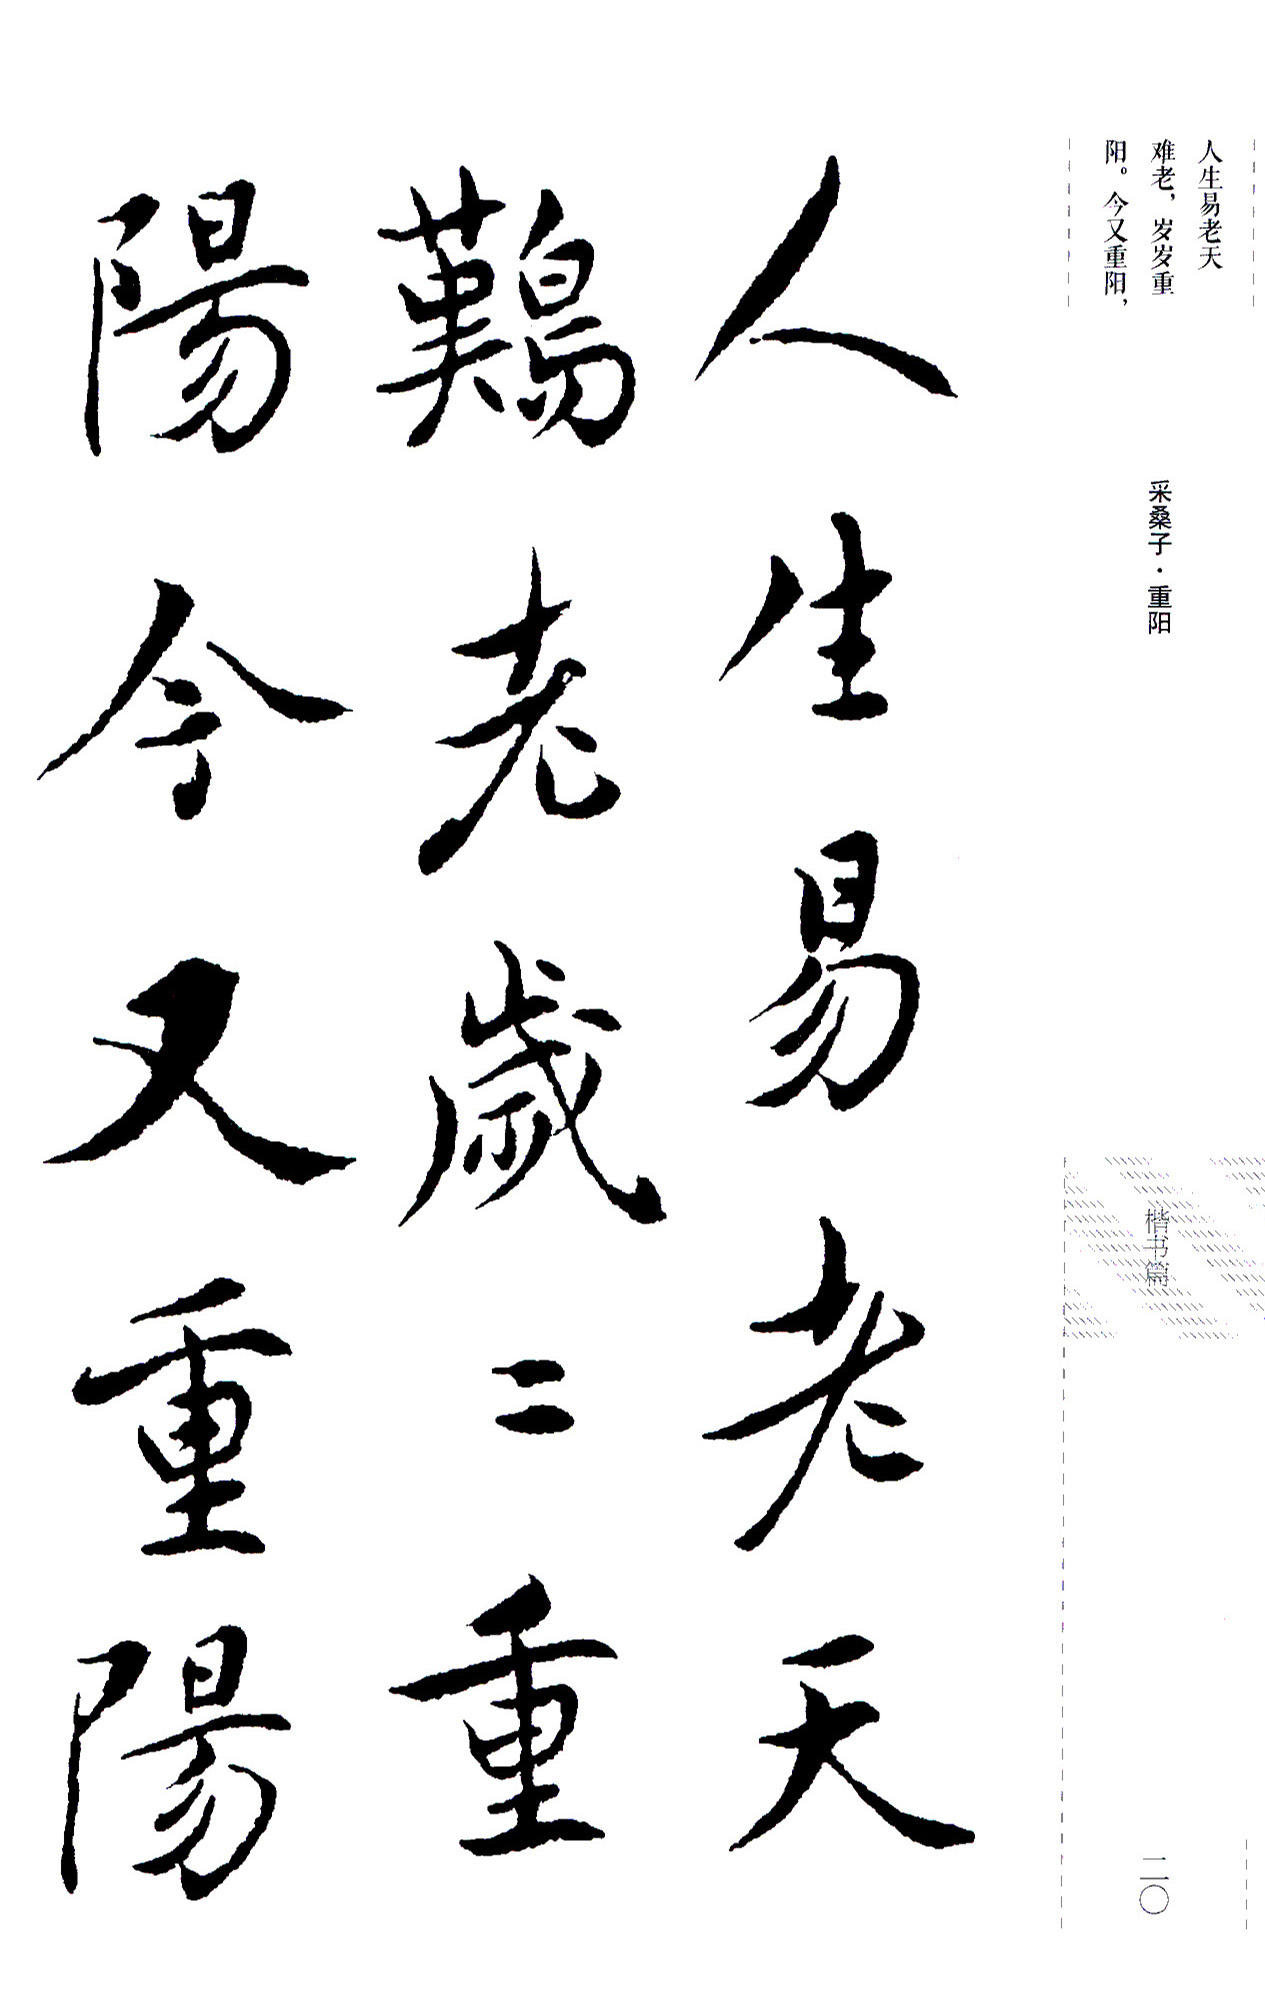 人生易老天
难老，岁岁重
阳。今又重阳，
采桑子·重阳
楷书篇
二〇
人生易老天
難老歲二重
陽今又重陽